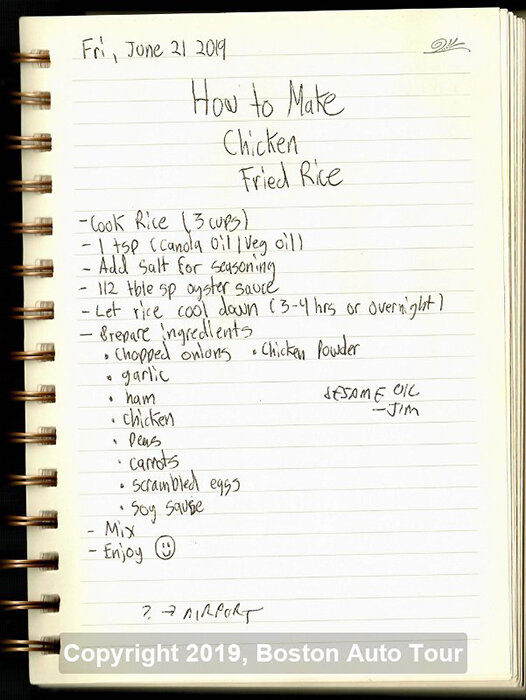 Fri, June 21 2019
How to Make
Chicken
Fried Rice
- Cook Rice (3 cups)
- 1 tsp (Canola Oil | Veg oil)
- Add salt for seasoning
- 1/2 tble sp oyster sauce
- Let rice cool down (3-4 hrs or overnight)
- Prepare ingredients
• Chopped onions • Chicken Powder
• garlic
• ham
• chicken
• peas
• carrots
• scrambled eggs
• soy sause
SESAME OIL
- JIM
- Mix
- Enjoy ☺
? → AIRPORT
Copyright 2019, Boston Auto Tour